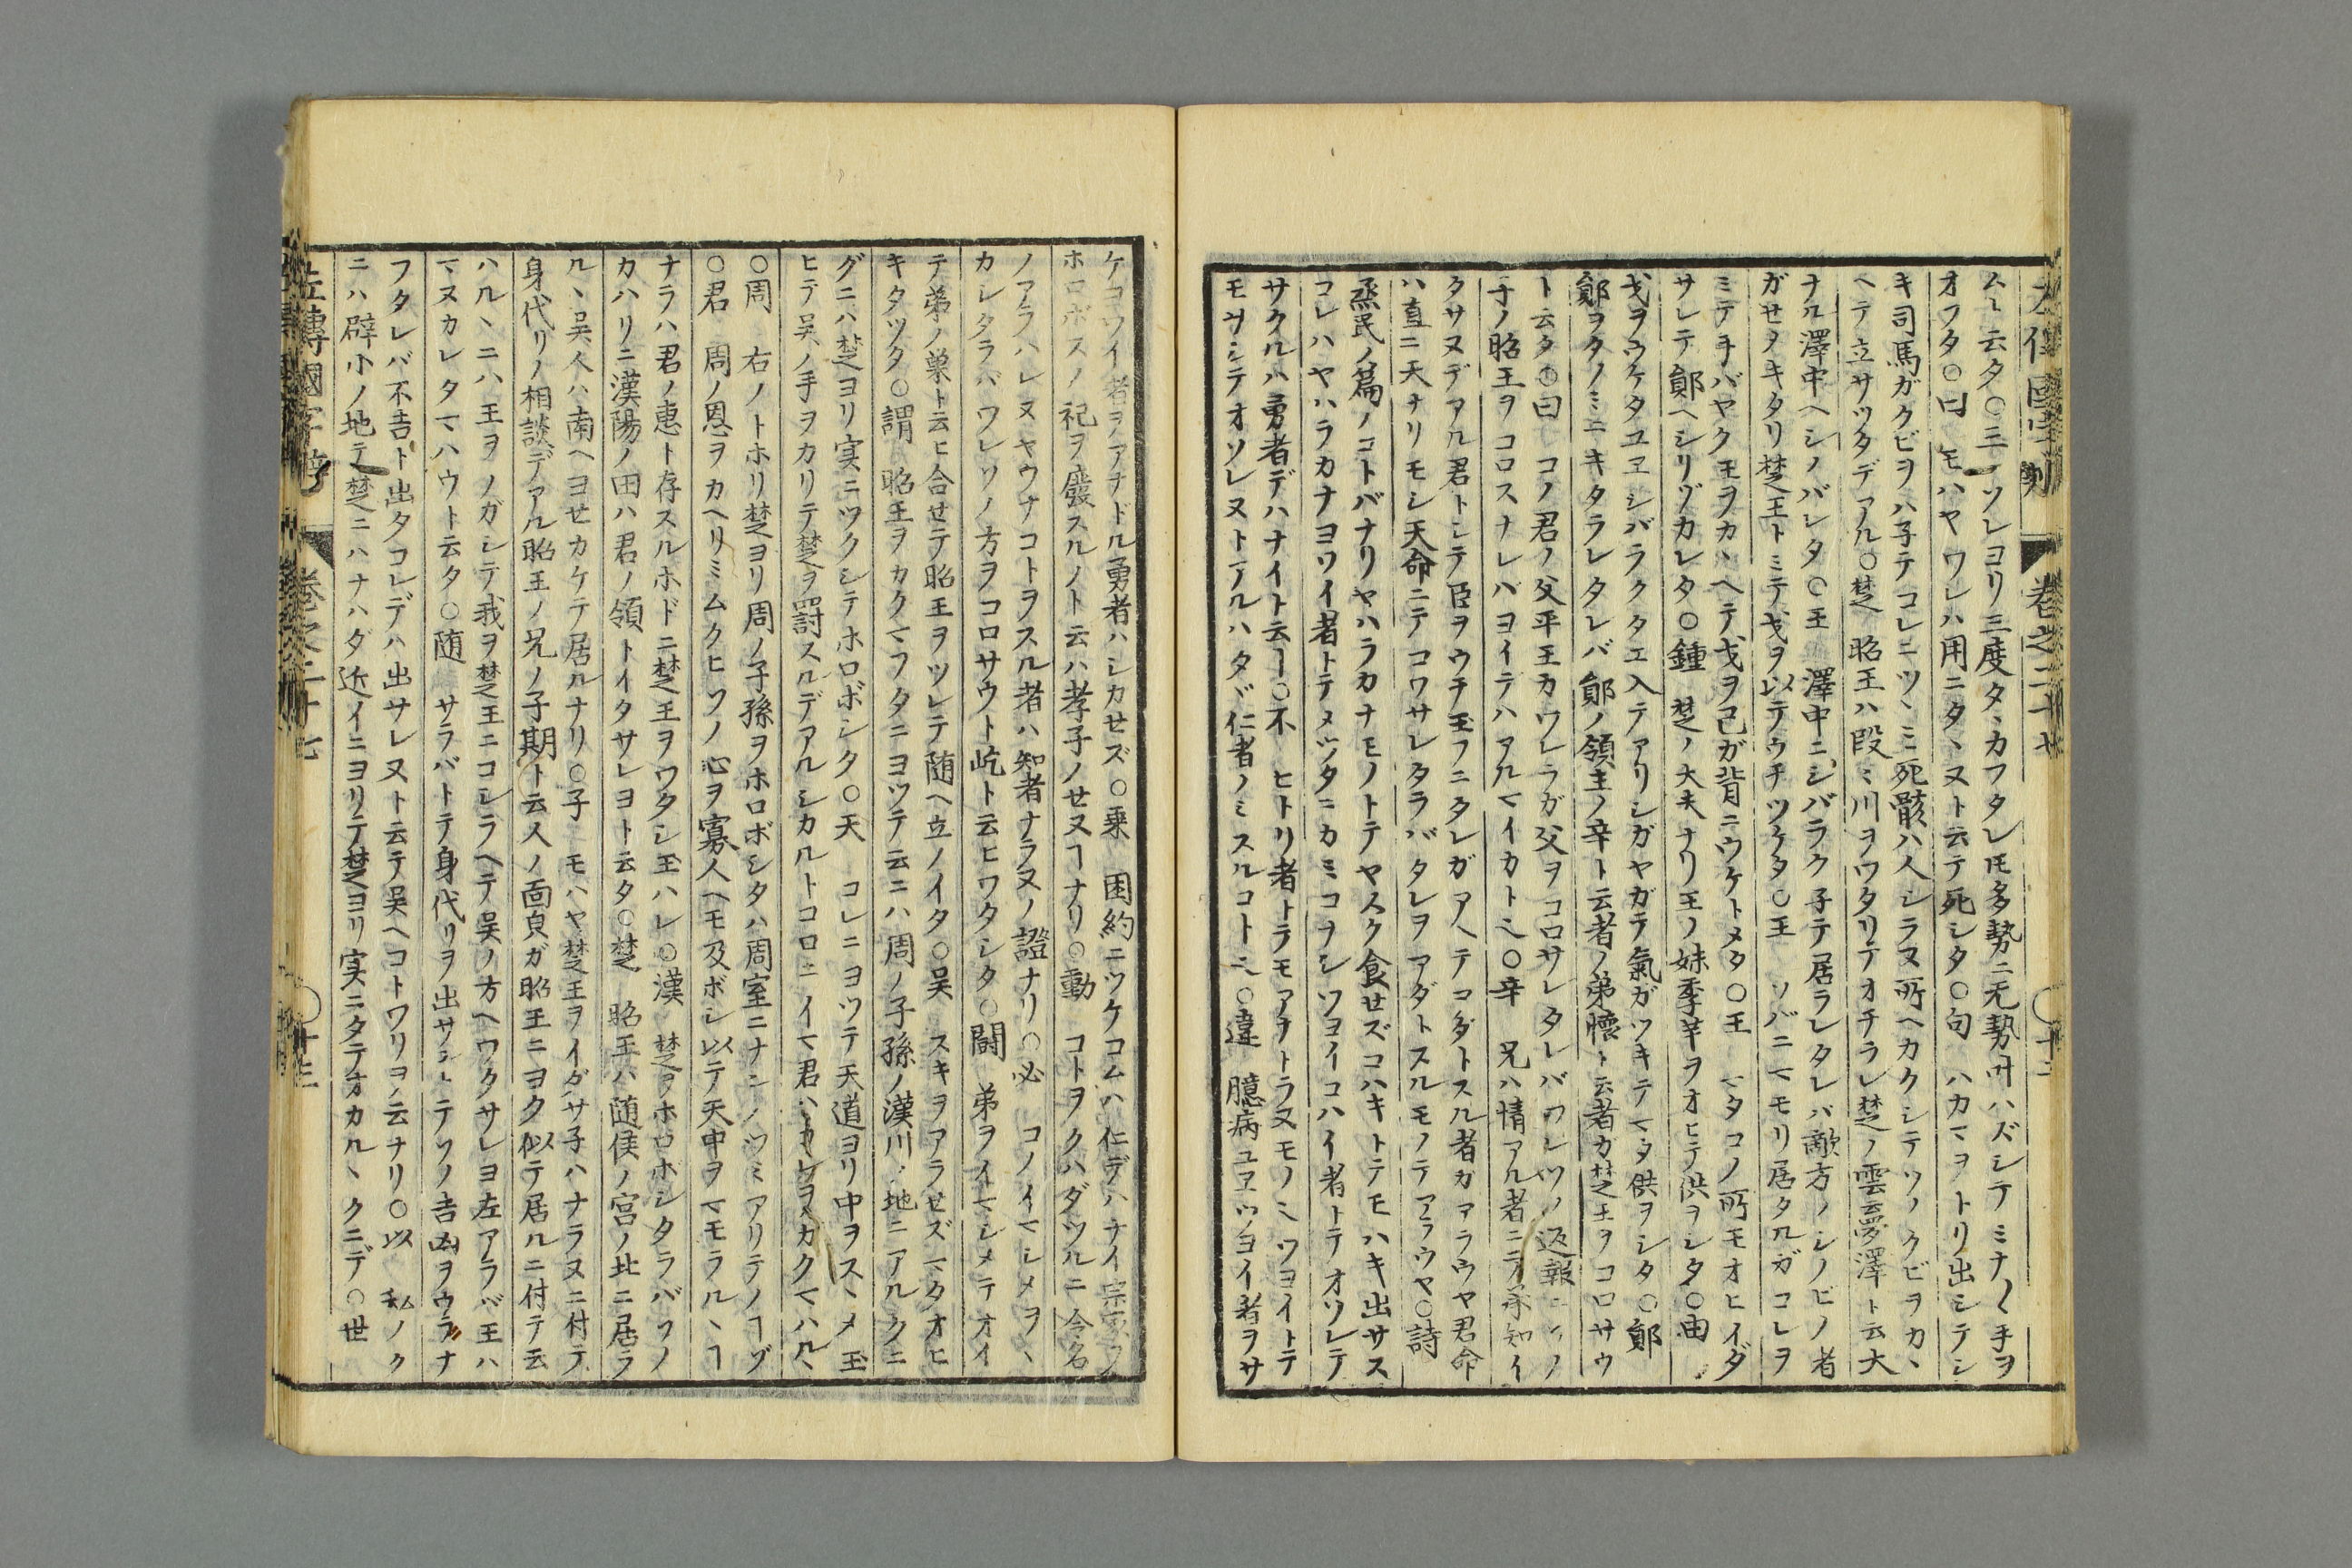 左傳國字辯 巻之二十七 ○十二
ム、云タ○三 ソレヨリ三度タ、カフタレ𪜈多勢ニ无勢ユヘハズシテミナ〳〵手ヲ
オフタ○曰 モハヤワレハ用ニタ、ヌト云テ死シタ○句 ハカマヲトリ出シテシ
キ司馬ガクビヲハ子テコレニツ、ミ死骸ハ人シラヌ所ヘカクシテソノクビヲカ、
ヘテ立サツタデアル○楚 昭王ハ段〻川ヲワタリテオチラレ楚ノ雲夢澤ト云大
ナル澤中ヘシノバレタ○王 澤中ニシバラク子テ居ラレタレバ敵方ノシノビノ者
ガせメキタリ楚王トミテ戈ヲ以テウチツケタ○王 ソバニマモリ居タルガコレヲ
ミテ手バヤク王ヲカ、ヘテ戈ヲ己ガ背ニウケトメタ○王 マタコノ所モオヒイダ
サレテ鄖ヘシリゾカレタ○鍾 楚ノ大夫ナリ王ノ妹季芉ヲオヒテ供ヲシタ○由
戈ヲウケタユヱシバラクタエ入テアリシガヤガテ氣ガツキテマタ供ヲシタ○鄖
鄖ヲタノミニキタラレタレバ鄖ノ領主ノ辛ト云者ノ弟懷ト云者カ楚王ヲコロサウ
ト云タ○曰 コノ君ノ父平王カワレラガ父ヲコロサレタレバワレソノ返報ニソノ
子ノ昭王ヲコロスナレバヨイテハアルマイカトヘ○辛 兄ハ情アル者ニテ承知イ
クサヌデアル君トシテ臣ヲウチ玉フニタレガアヘテコタトスル者カアラウヤ君命
ハ直ニ天ナリモシ天命ニテコロサレタラバタレヲアダトスルモノテアラウヤ○詩
烝民ノ篇ノコトバナリヤハラカナモノトテヤスク食せズコハキトテモハキ出サス
コレハヤハラカナヨワイ者トテメツタニカミコヲシツヨイコハイ者トテオソレテ
サクルハ勇者デハナイト云ヿ○不 ヒトリ者トラモアヲトラヌモノヘツヨイトテ
モサシテオソレヌトアルハタヾ仁者ノミスルコトヘ○違 臆病ユヱツヨイ者ヲサ
ケヨワイ者ヲアナドル勇者ハシカせズ○乗 困約ニツケコムハ仁デハナイ宗
ホロボスノ祀ヲ廢スルノト云ハ孝子ノせヌヿナリ○動 コトヲノクハダツルニ令名
ノアラハレヌヤウナコトヲスル者ハ知者ナラヌノ證ナリ○必 コノイマシメヲ、
カレタラバワレソノ方ヲコロサウト屹ト云ヒワタシタ○鬪 弟ヲイマシメテオイ
テ弟ノ巣ト云ヒ合せテ昭王ヲツレテ随ヘ立ノイタ○吴 スキヲアラせズマタオヒ
キタツタ○謂 昭王ヲカクマフタニヨツテ云ニハ周ノ子孫ノ漢川ノ地ニアルクニ
グニハ楚ヨリ実ニツクシテホロボシタ○天 コレニヨツテ天道ヨリ中ヲス、メ玉
ヒテ吴ノ手ヲカリテ楚ヲ罸スルデアルシカルトコロニイマ君ハカレヲカクマハル、
○周 右ノトホリ楚ヨリ周ノ子孫ヲホロボシタハ周室ニナニノツミアリテノヿゾ
○君 周ノ恩ヲカヘリミムクヒソノ心ヲ寡人ヘモ及ボシ以テ天中ヲマモラル、ヿ
ナラハ君ノ惠ト存スルホドニ楚王ヲワタシ玉ハレ○漢 楚ヲホロボシタラバソノ
カハリニ漢陽ノ田ハ君ノ領トイタサレヨト云タ○楚 昭王ハ随侯ノ宮ノ北ニ居ラ
ル、吴人ハ南ヘヨせカケテ居ルナリ○子 モハヤ楚王ヲイダサ子ハナラヌニ付テ
身代リノ相談デアル昭王ノ兄ノ子期ト云人ノ面皃ガ昭王ニヨク似テ居ルニ付テ云
ハル、ニハ王ヲノガシテ我ヲ楚王ニコシラヘテ吴ノ方ヘワタサレヨ左アラバ王ハ
マヌカレタマハウト云タ○随 サラバトテ身代リヲ出サントテソノ吉凶ヲウラナ
フタレバ不吉ト出タコレデハ出サレヌト云テ吴ヘコトワリヨノ云ナリ○以 私ノク
ニハ辟小ノ地テ楚ニハナハダ近イニヨリテ楚ヨリ実ニタテオカル、クニデ○世
左傳國字辯 巻之二十七 ○十三